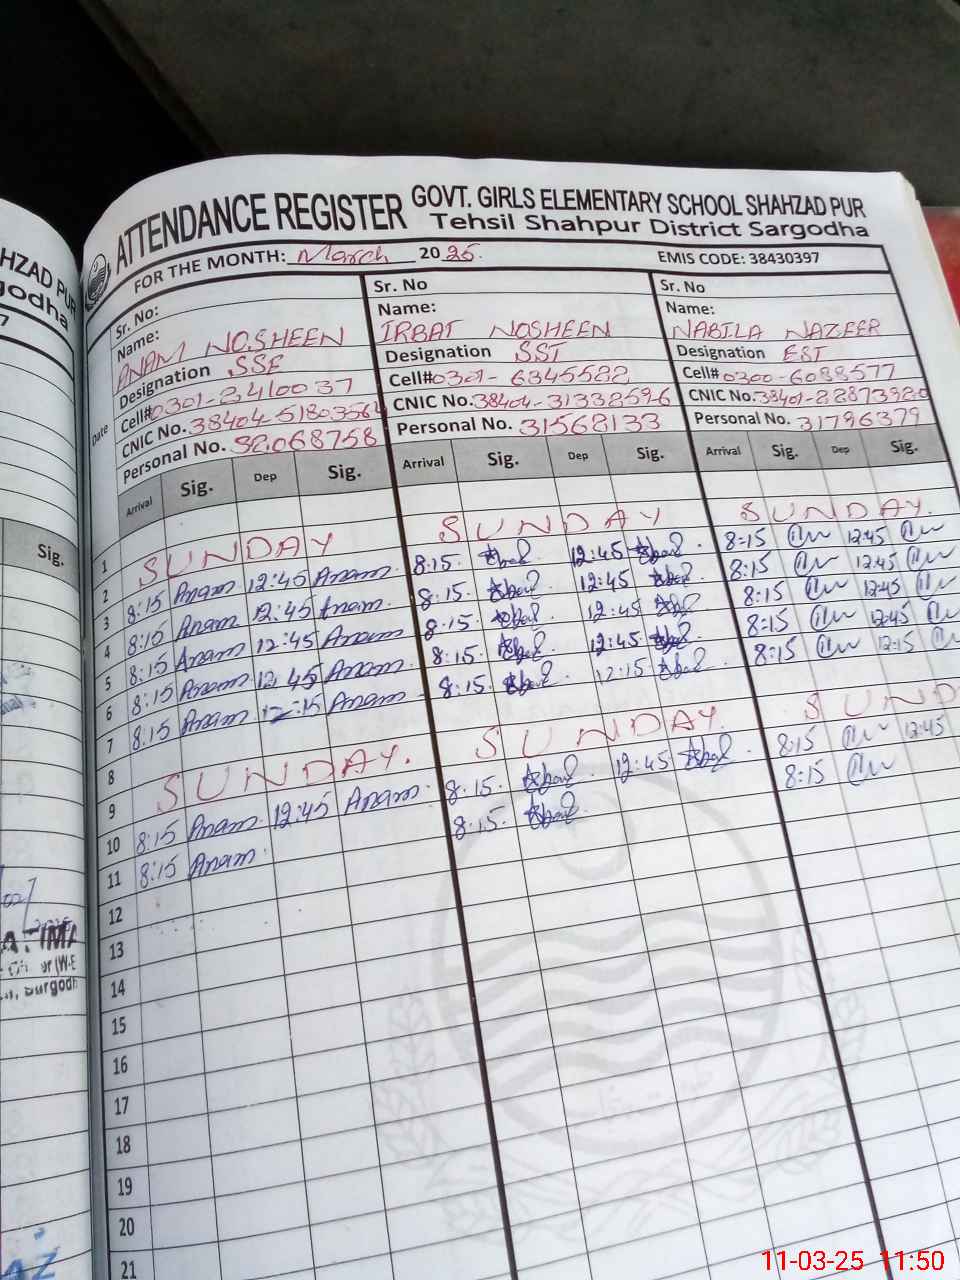 ATTENDANCE REGISTER GOVT. GIRLS ELEMENTARY SCHOOL SHAHZAD PUR
Tehsil Shahpur District Sargodha
FOR THE MONTH: March 2025. EMIS CODE: 38430397
Sr. No: Sr. No Sr. No
Name: Name: Name:
ANAM NOSHEEN IRBAT NOSHEEN NABILA NAZEER
Designation SSE Designation SST Designation EST
Cell#0301-2410037 Cell#0301-6345522 Cell#0300-6088577
CNIC No. 38404-5180356 CNIC No. 38404-3133259-6 CNIC No. 38401-8287392
Personal No. 32068758 Personal No. 31562133 Personal No. 31796379
Date Arrival Sig. Dep Sig. Arrival Sig. Dep Sig. Arrival Sig. Dep Sig.
1
2 SUNDAY SUNDAY SUNDAY.
3 8:15 Anam 12:45 Anam 8:15 12:45 8:15 12:45
4 8:15 Anam 12:45 Anam 8:15 12:45 8:15 12:45
5 8:15 Anam 12:45 Anam 8:15 12:45 8:15 12:45
6 8:15 Anam 12:45 Anam 8:15 12:45 8:15 12:45
7 8:15 Anam 12:15 Anam 8:15 12:15 8:15 12:15
8
9 SUNDAY. SUNDAY. SUND
10 8:15 Anam 12:45 Anam 8:15 12:45 8:15 12:45
11 8:15 Anam 8:15 8:15
12
13
14
15
16
17
18
19
20
21
HZAD PUR
godha
7
Sig.
11-03-25 11:50